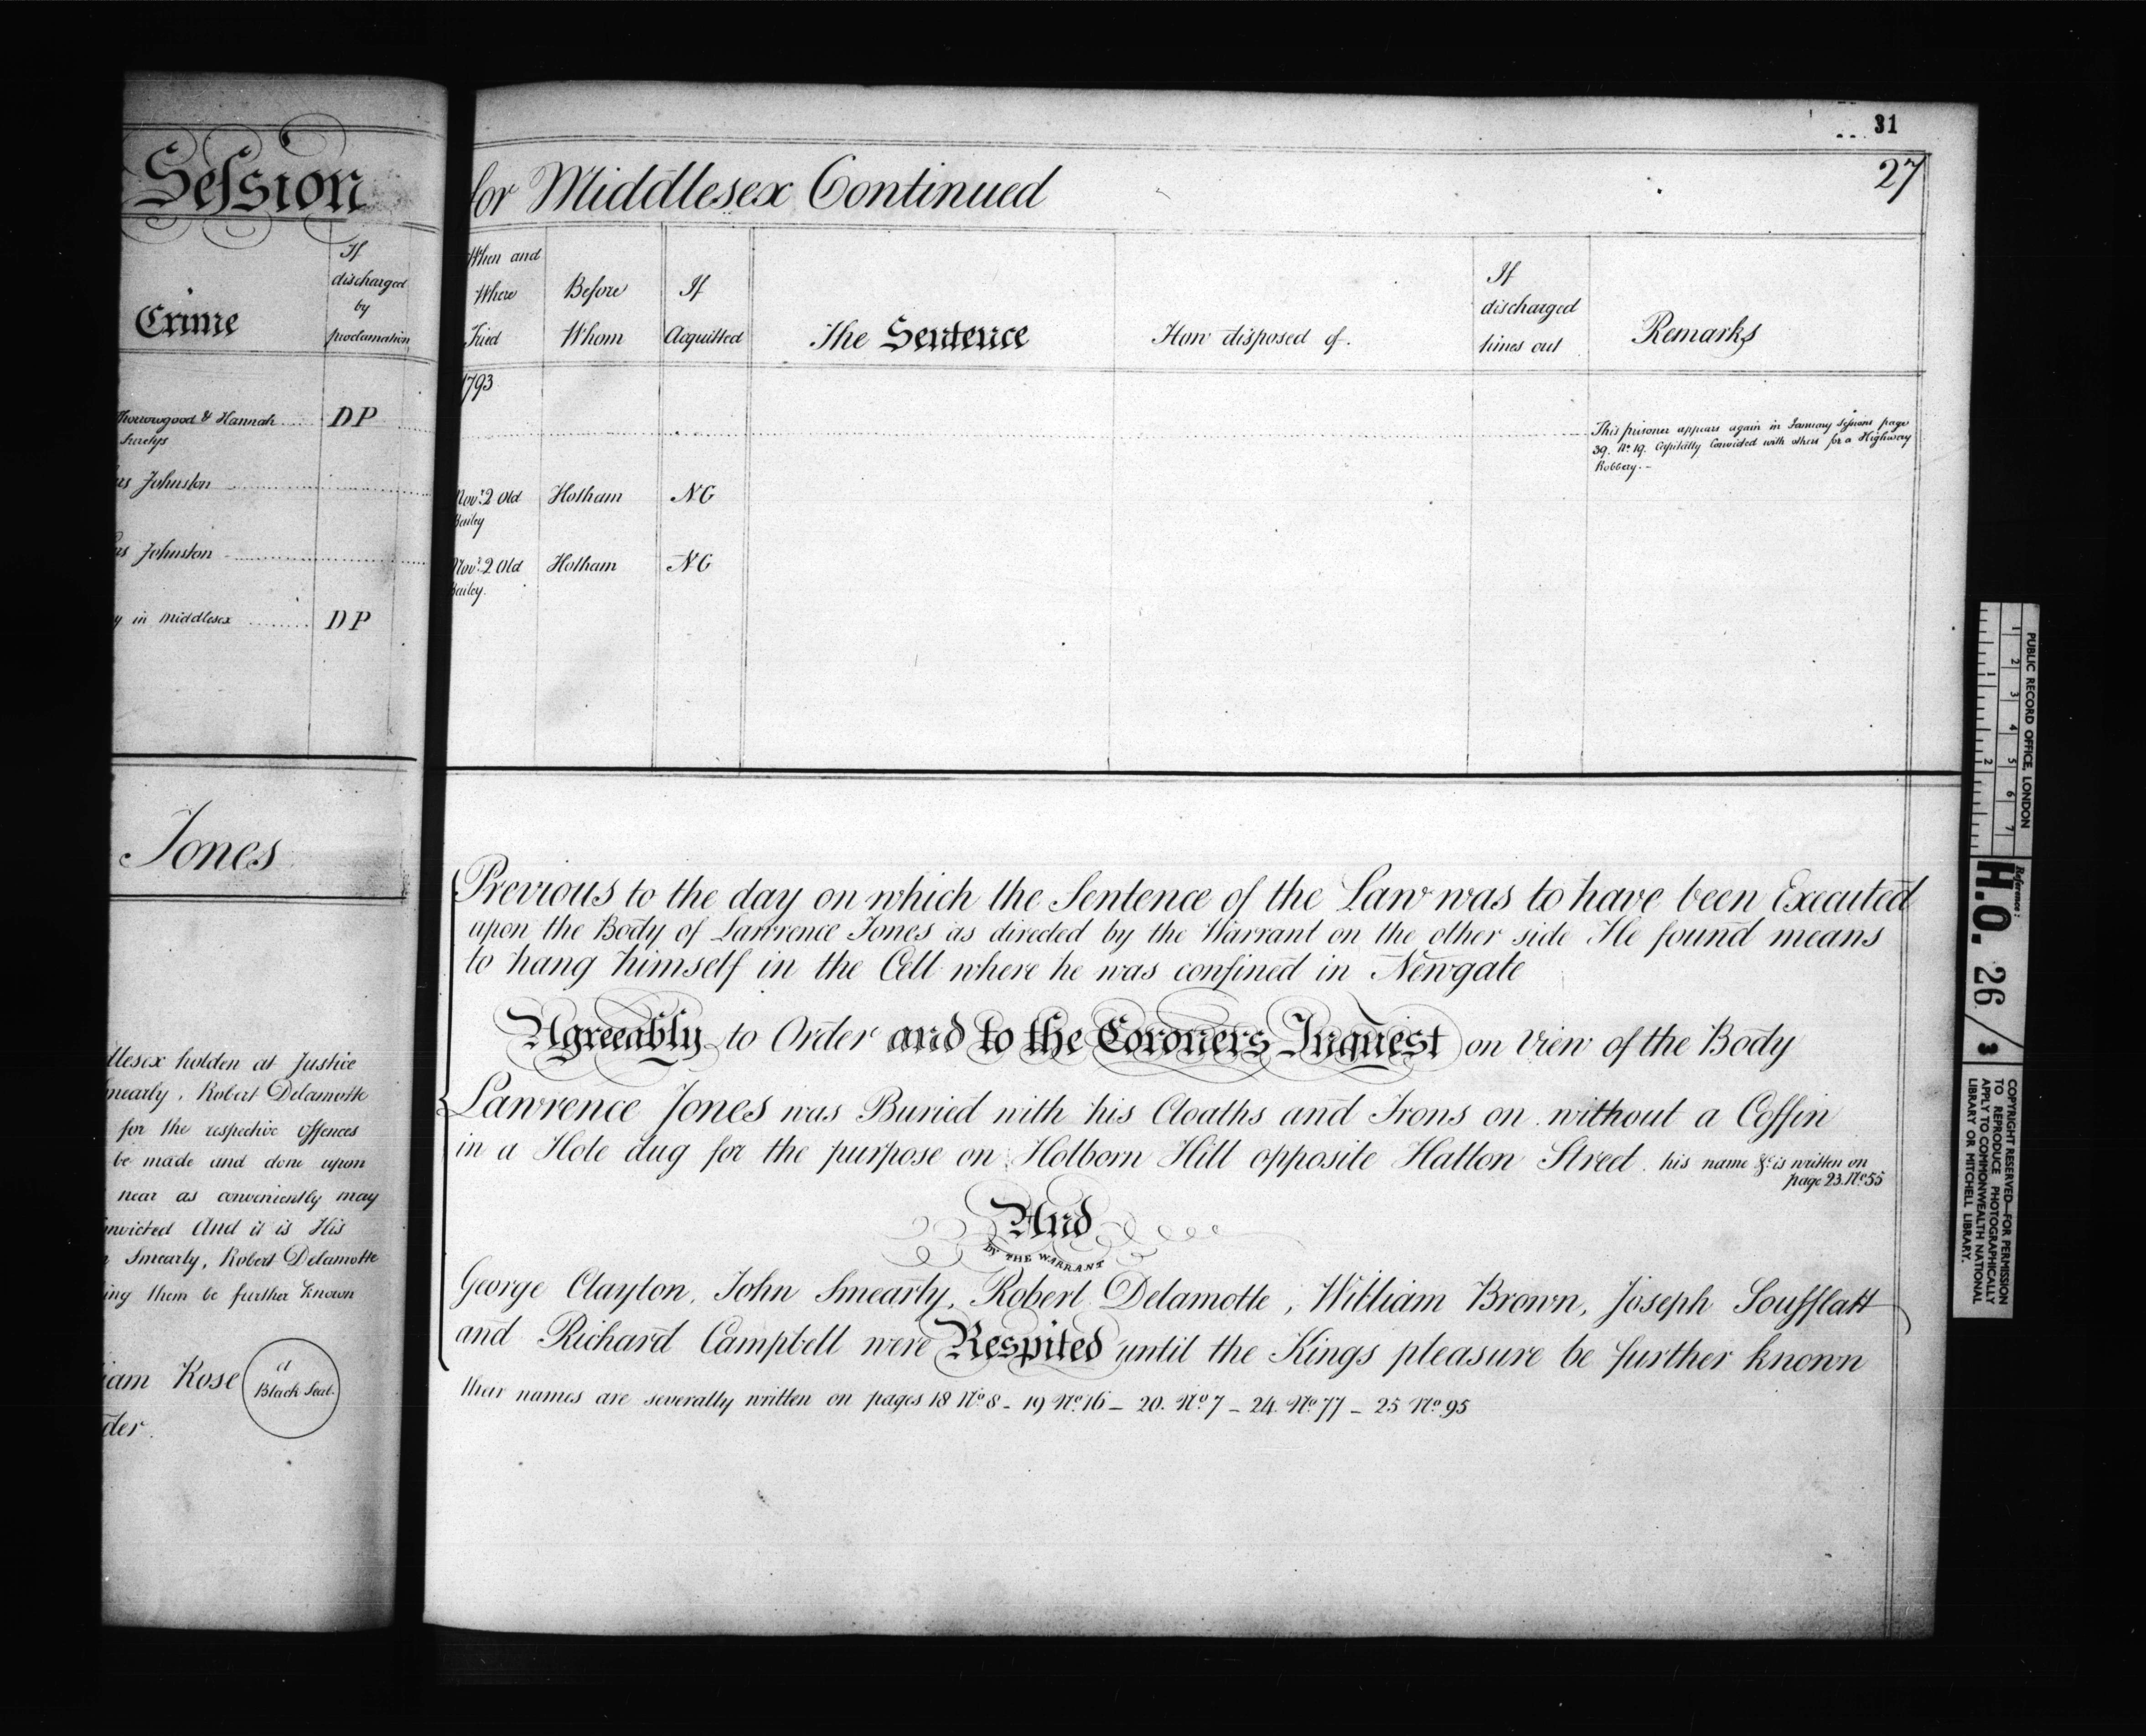 Session
If
discharged
by
proclamation
Crime
& Hannah
DP
Johnston
Johnston
in Middlesex
DP
Jones
holden at Justice
Robert Delamotte
for the respective offences
be made and done upon
near as conveniently may
And it is His
Smearly, Robert Delamotte
them be further known
Rose
a
Black Seal.
31
27
for Middlesex Continued
When and
Where
Tried
Before
Whom
If
Acquitted
The Sentence
How disposed of.
If
discharged
times out
Remarks
1793
This prisoner appears again in January Sessions page
39. No. 19. Capitally Convicted with others for a Highway
Robbery.-
Novr. 2 Old
Bailey
Hotham
NG
Novr. 2 Old
Bailey.
Hotham
NG
Previous to the day on which the Sentence of the Law was to have been Executed
upon the Body of Lawrence Jones as directed by the Warrant on the other side He found means
to hang himself in the Cell where he was confined in Newgate
Agreeably to Order and to the Coroners Inquest on View of the Body
Lawrence Jones was Buried with his Cloaths and Irons on without a Coffin
in a Hole dug for the purpose on Holborn Hill opposite Hatton Street. his name &c. is written on
page 23. No. 55
And
BY THE WARRANT
George Clayton, John Smearly, Robert Delamotte, William Brown, Joseph Soufflatt
and Richard Campbell were Respited until the Kings pleasure be further known
their names are severally written on pages 18 No. 8 - 19 No. 16 - 20. No. 7 - 24. No. 77 - 25 No. 95
PUBLIC RECORD OFFICE, LONDON
1 2 3 4 5 6 7
1 2
Reference:
H.O. 26/3
COPYRIGHT RESERVED—FOR PERMISSION
TO REPRODUCE PHOTOGRAPHICALLY
APPLY TO COMMONWEALTH NATIONAL
LIBRARY OR MITCHELL LIBRARY.